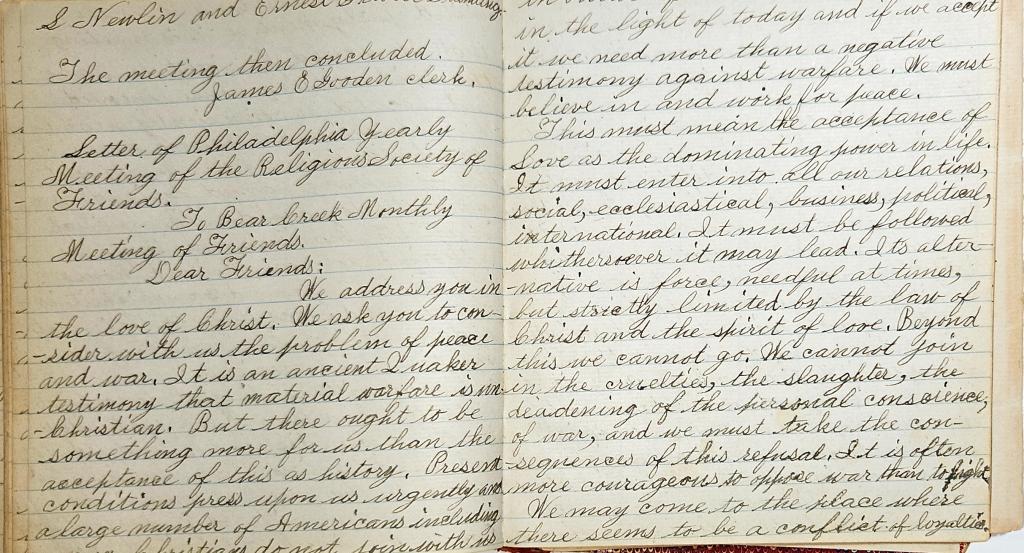 S Newlin and Ernest
The meeting then concluded.
James E Gooden clerk.
Letter of Philadelphia Yearly
Meeting of the Religious Society of
Friends.
To Bear Creek Monthly
Meeting of Friends.
Dear Friends:
We address you in
the love of Christ. We ask you to con-
-sider with us the problem of peace
and war. It is an ancient Quaker
testimony that material warfare is un-
-Christian. But there ought to be
something more for us than the
acceptance of this as history. Present
conditions press upon us urgently and
a large number of Americans including
Christians do not join with us
in the light of today and if we accept
it we need more than a negative
testimony against warfare. We must
believe in and work for peace.
This must mean the acceptance of
Love as the dominating power in life.
It must enter into all our relations,
social, ecclesiastical, business, political,
international. It must be followed
whithersoever it may lead. Its alter-
-native is force, needful at times,
but strictly limited by the law of
Christ and the spirit of love. Beyond
this we cannot go. We cannot join
in the cruelties, the slaughter, the
deadening of the personal conscience,
of war, and we must take the con-
-sequences of this refusal. It is often
more courageous to oppose war than to fight
We may come to the place where
there seems to be a conflict of loyalties.